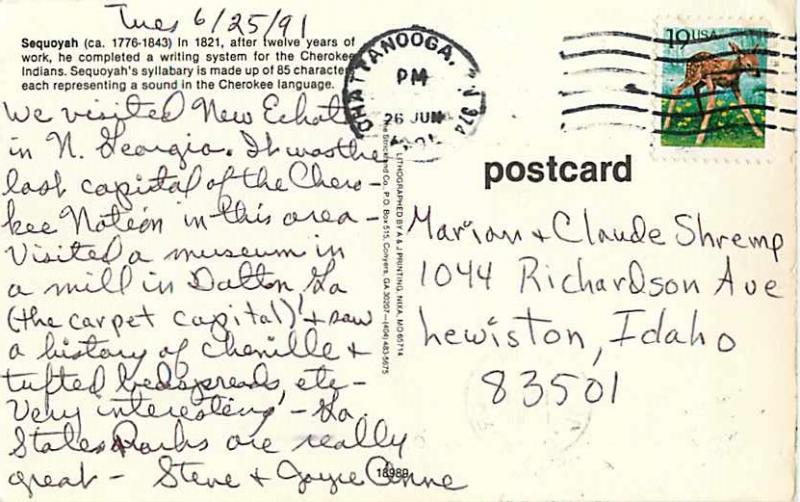 Tues 6/25/91
Sequoyah (ca. 1776-1843) In 1821, after twelve years of
work, he completed a writing system for the Cherokee
Indians. Sequoyah's syllabary is made up of 85 characters
each representing a sound in the Cherokee language.
We visited New Echota
in N. Georgia. It was the
last capital of the Chero-
kee Nation in this area -
Visited a museum in
a mill in Dalton Ga
(the carpet capital) & saw
a history of chenille &
tufted bedspreads, etc -
Very interesting - Ga.
State Parks are really
great - Steve & Joyce Anne
18989
LITHOGRAPHED BY A & J PRINTING, NIXA, MO 65714
The Strickland Co., P.O. Box 515, Conyers, GA 30207—(404) 483-5675
CHATTANOOGA, TN 374
PM
26 JUN
1991
19 USA
postcard
Marian & Claude Shremp
1044 Richardson Ave
Lewiston, Idaho
83501